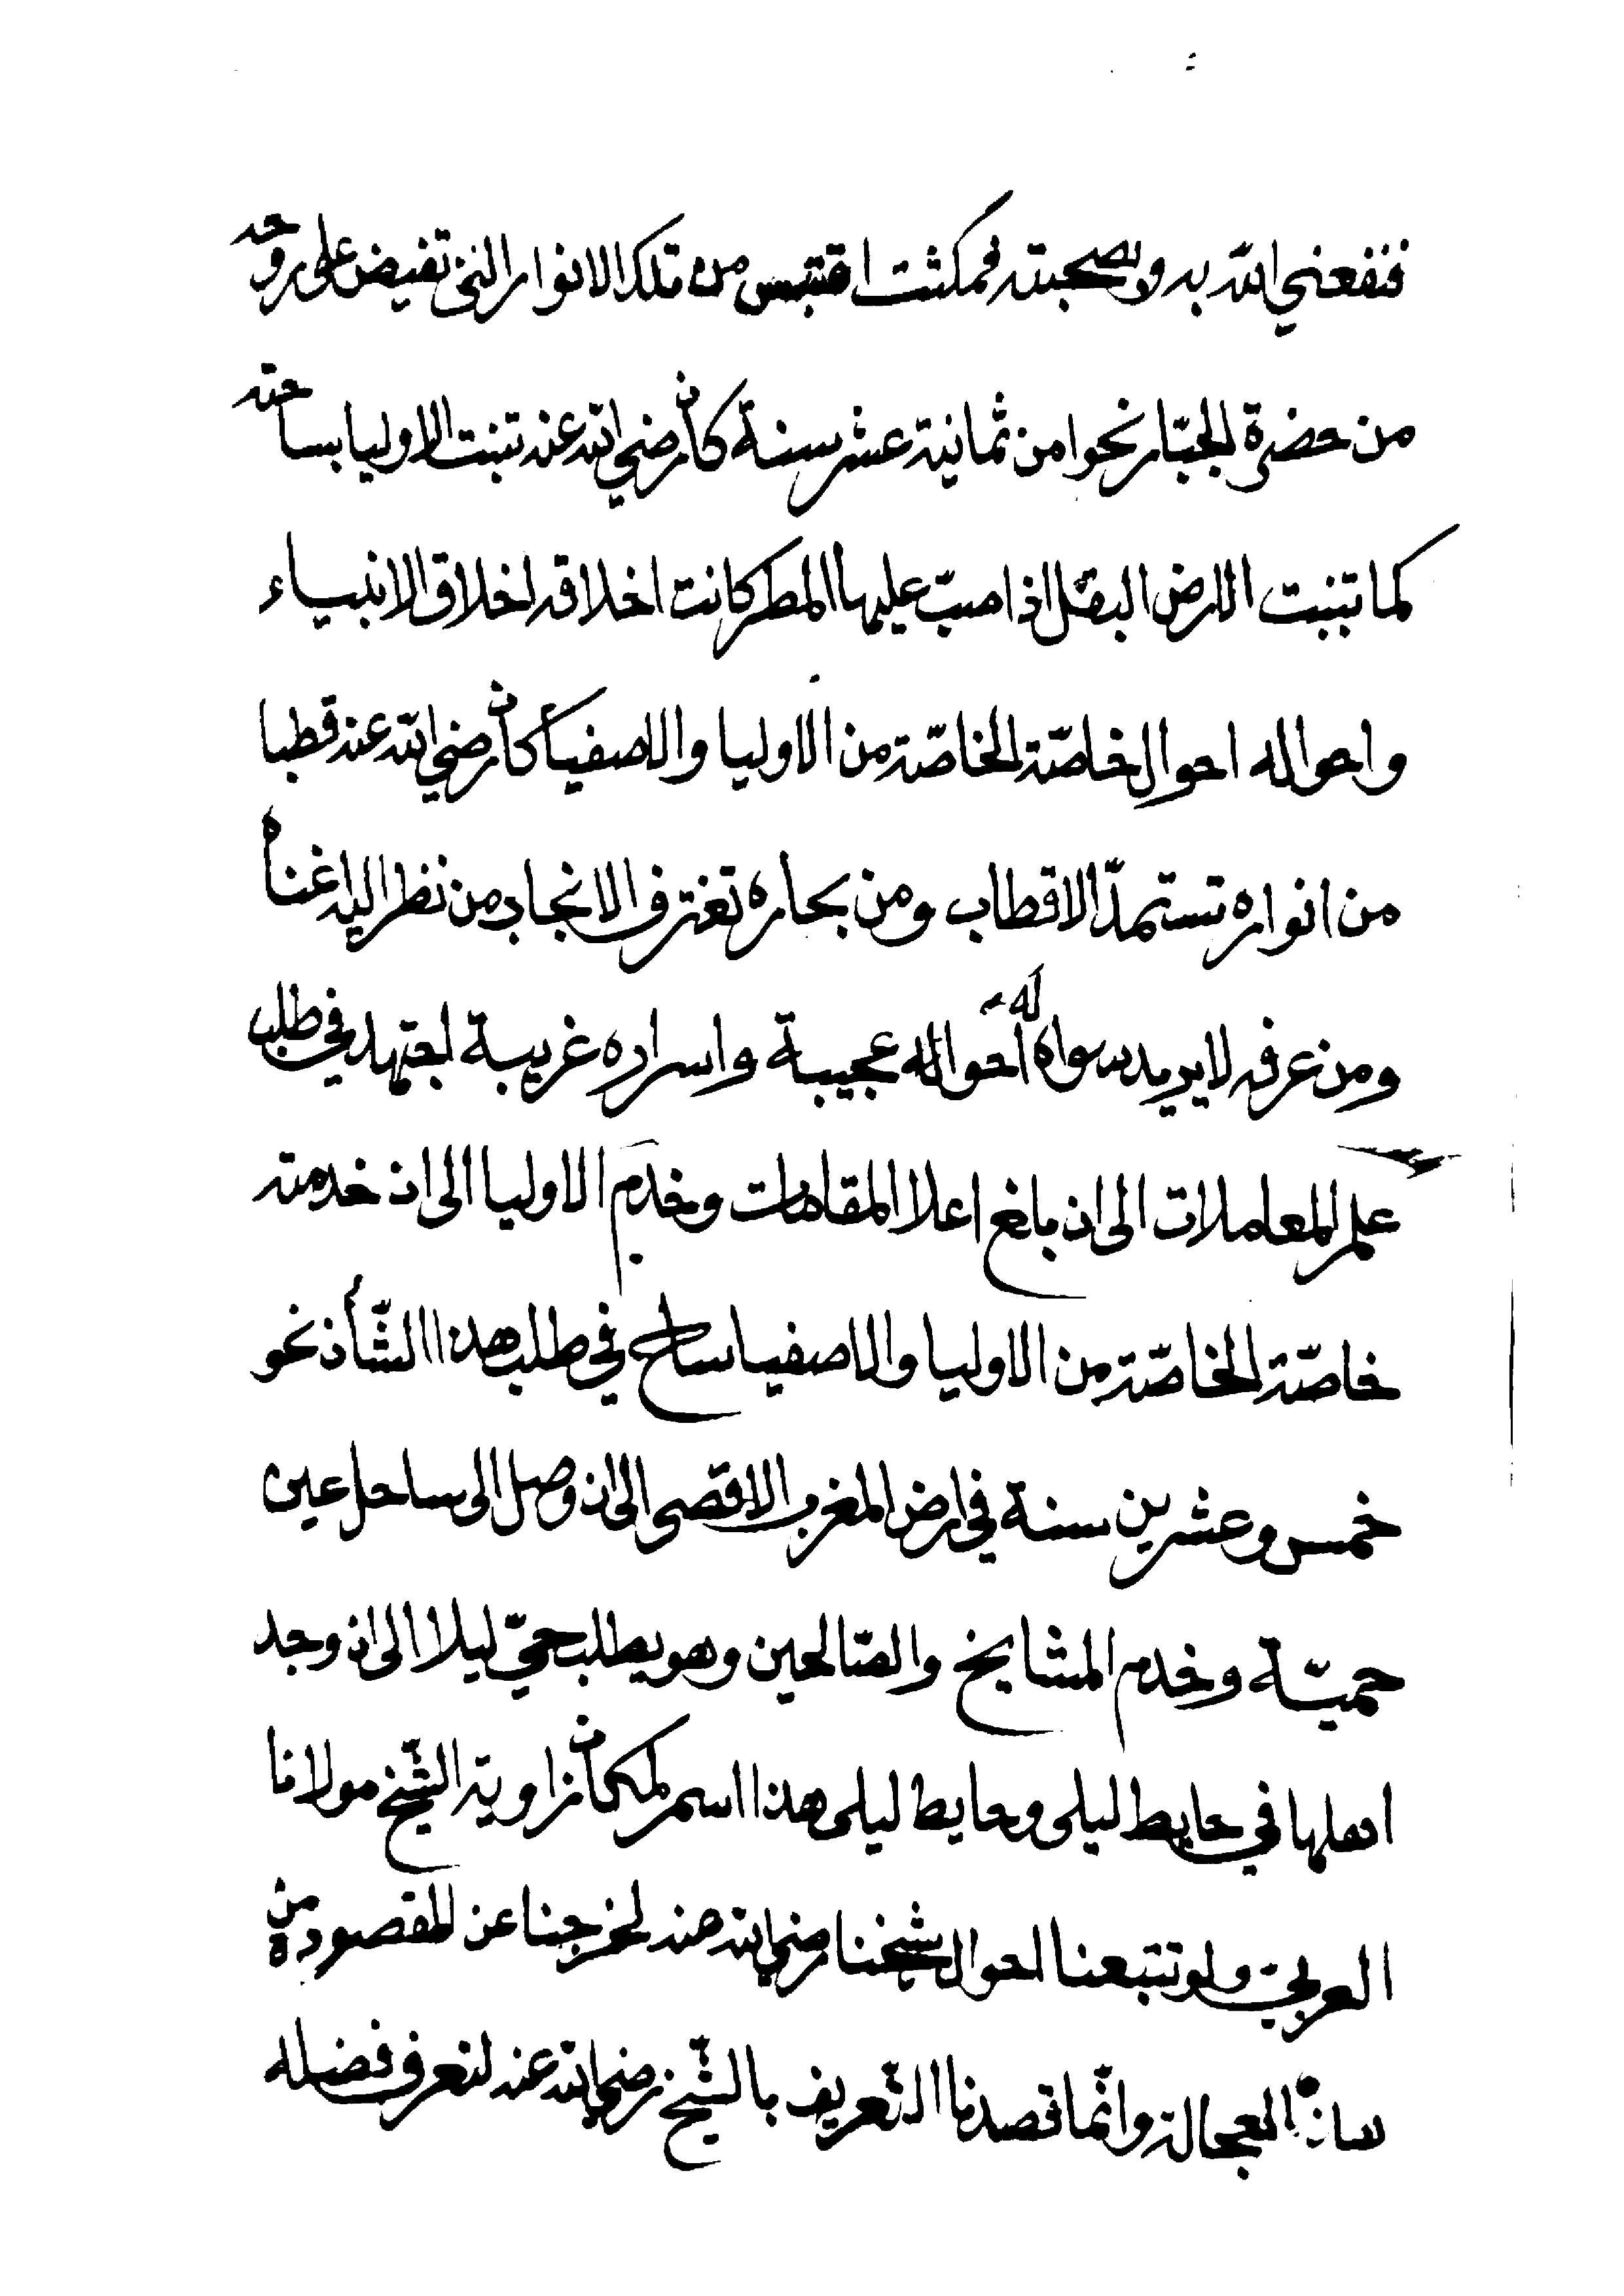 فنفعني الله به وبصحبته فمكثت اقتبس من تلك الانوار التي تفيض على روحه
من حضرة الجبّار نحوا من ثمانية عشر سنة كان رضي الله عنه تنبت الاوليا بساحته
كما تنبت الارض البقل اذا صبّ عليها المطر كانت اخلاقه اخلاق الانبياء
واحواله احوال خاصّة الخاصّة من الاوليا والاصفياء كان رضي الله عنه قطبا
من انواره تستمدّ الاقطاب ومن بحاره تغترف الانجاب من نظر اليه اغناه
ومن عرفه لا يريد سواه له احواله عجيبة واسراره غريبة اجتهد في طلب
علم المعاملات الى ان بلغ اعلا المقامات وخدم الاوليا الى ان خدمته
خاصّة الخاصّة من الاوليا والاصفيا ساح في طلب هذا الشّأن نحو
خمس وعشرين سنة في ارض المغرب الاقصى الى ان وصل الى ساحل عين
حميّة وخدم المشايخ والصّالحين وهو يطلب حيّ ليلا الى ان وجد
اهلها في حايط ليلى وحايط ليلى هذا اسم لمكان زاوية الشّيخ مولانا
العربيّ ولو تتبعنا احوال شيخنا رضي الله عنه لخرجنا عن المقصود من
العجالة وانّما قصدنا التّعريف بالشّيخ رضي الله عنه لنعرف فضله